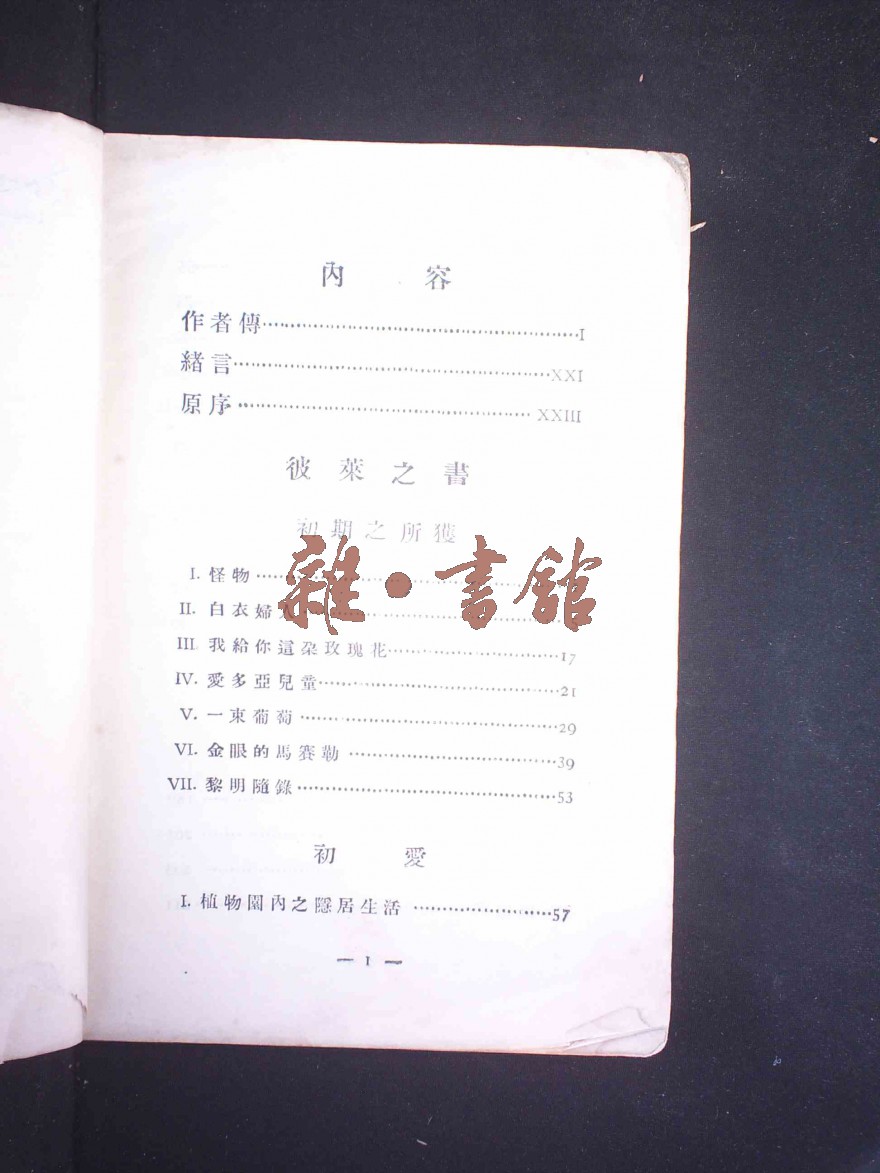 內 容
作者傳……I
緒言……XXI
原序……XXIII
彼萊之書
初期之所獲
I. 怪物……
II. 白衣婦
III. 我給你這朶玫瑰花……17
IV. 愛多亞兒童……21
V. 一束葡萄……29
VI. 金眼的馬賽勒……39
VII. 黎明隨錄……53
初 愛
I. 植物園內之隱居生活……57
— 1 —
雜·書館